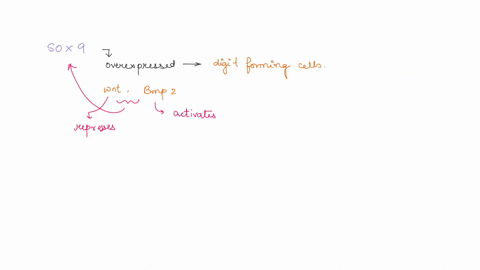 SOX 9
overexpressed → digit forming cells.
wnt, Bmp 2
activates
represses